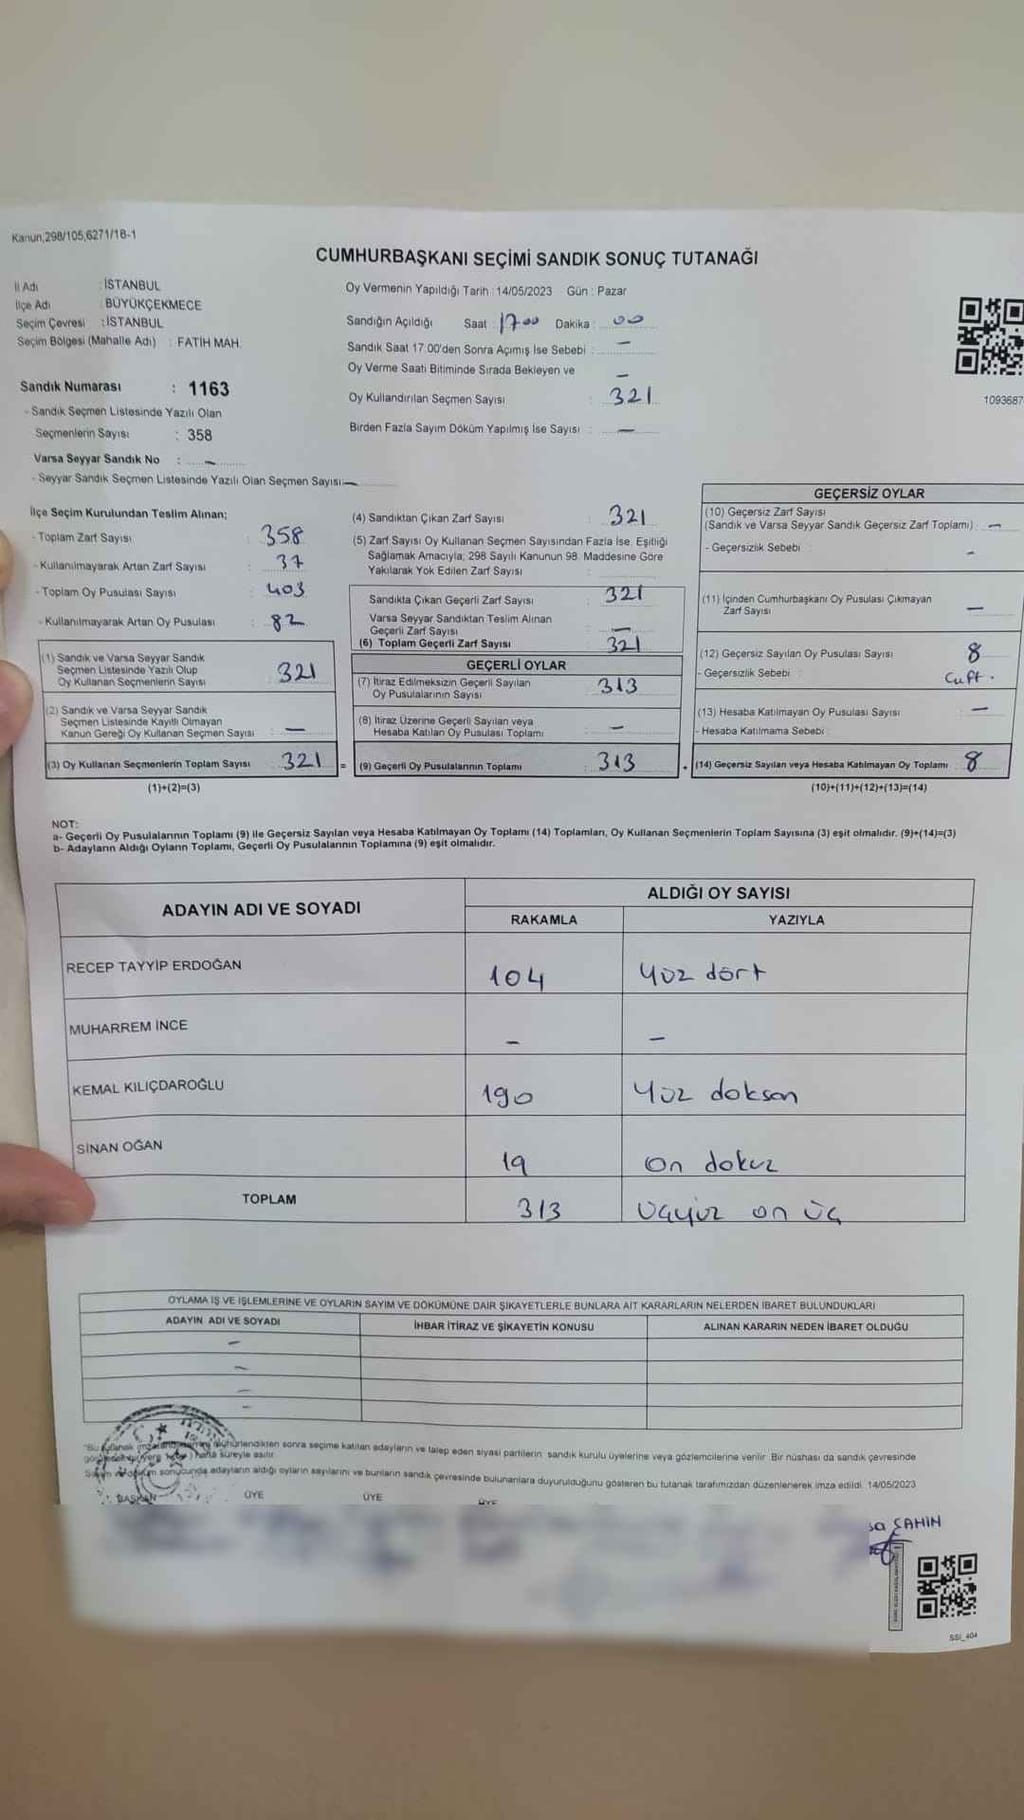 Kanun,298/105,6271/18-1
CUMHURBAŞKANI SEÇİMİ SANDIK SONUÇ TUTANAĞI
İl Adı : İSTANBUL
İlçe Adı : BÜYÜKÇEKMECE
Seçim Çevresi : İSTANBUL
Seçim Bölgesi (Mahalle Adı) : FATİH MAH.
Sandık Numarası : 1163
- Sandık Seçmen Listesinde Yazılı Olan
Seçmenlerin Sayısı : 358
Varsa Seyyar Sandık No : –
- Seyyar Sandık Seçmen Listesinde Yazılı Olan Seçmen Sayısı: –
Oy Vermenin Yapıldığı Tarih : 14/05/2023 Gün : Pazar
Sandığın Açıldığı Saat : 17 00 Dakika : 00
Sandık Saat 17:00'den Sonra Açımış İse Sebebi : –
Oy Verme Saati Bitiminde Sırada Bekleyen ve –
Oy Kullandırılan Seçmen Sayısı : 321
Birden Fazla Sayım Döküm Yapılmış İse Sayısı : –
1093687
İlçe Seçim Kurulundan Teslim Alınan;
- Toplam Zarf Sayısı : 358
- Kullanılmayarak Artan Zarf Sayısı : 37
- Toplam Oy Pusulası Sayısı : 403
- Kullanılmayarak Artan Oy Pusulası : 82
(1) Sandık ve Varsa Seyyar Sandık
Seçmen Listesinde Yazılı Olup
Oy Kullanan Seçmenlerin Sayısı : 321
(2) Sandık ve Varsa Seyyar Sandık
Seçmen Listesinde Kayıtlı Olmayan
Kanun Gereği Oy Kullanan Seçmen Sayısı : –
(3) Oy Kullanan Seçmenlerin Toplam Sayısı : 321 =
(1)+(2)=(3)
(4) Sandıktan Çıkan Zarf Sayısı : 321
(5) Zarf Sayısı Oy Kullanan Seçmen Sayısından Fazla İse, Eşitliği
Sağlamak Amacıyla; 298 Sayılı Kanunun 98. Maddesine Göre
Yakılarak Yok Edilen Zarf Sayısı :
Sandıkta Çıkan Geçerli Zarf Sayısı : 321
Varsa Seyyar Sandıktan Teslim Alınan
Geçerli Zarf Sayısı : –
(6) Toplam Geçerli Zarf Sayısı : 321
GEÇERLİ OYLAR
(7) İtiraz Edilmeksizin Geçerli Sayılan
Oy Pusulalarının Sayısı : 313
(8) İtiraz Üzerine Geçerli Sayılan veya
Hesaba Katılan Oy Pusulası Toplamı : –
(9) Geçerli Oy Pusulalarının Toplamı : 313
GEÇERSİZ OYLAR
(10) Geçersiz Zarf Sayısı
(Sandık ve Varsa Seyyar Sandık Geçersiz Zarf Toplamı) : –
- Geçersizlik Sebebi : –
(11) İçinden Cumhurbaşkanı Oy Pusulası Çıkmayan
Zarf Sayısı : –
(12) Geçersiz Sayılan Oy Pusulası Sayısı : 8
- Geçersizlik Sebebi : Çift.
(13) Hesaba Katılmayan Oy Pusulası Sayısı : –
- Hesaba Katılmama Sebebi :
(14) Geçersiz Sayılan veya Hesaba Katılmayan Oy Toplamı : 8
(10)+(11)+(12)+(13)=(14)
NOT:
a- Geçerli Oy Pusulalarının Toplamı (9) ile Geçersiz Sayılan veya Hesaba Katılmayan Oy Toplamı (14) Toplamları, Oy Kullanan Seçmenlerin Toplam Sayısına (3) eşit olmalıdır. (9)+(14)=(3)
b- Adayların Aldığı Oyların Toplamı, Geçerli Oy Pusulalarının Toplamına (9) eşit olmalıdır.
ADAYIN ADI VE SOYADI ALDIĞI OY SAYISI
RAKAMLA YAZIYLA
RECEP TAYYİP ERDOĞAN 104 Yüz dört
MUHARREM İNCE – –
KEMAL KILIÇDAROĞLU 190 Yüz doksan
SİNAN OĞAN 19 On dokuz
TOPLAM 313 Üçyüz on üç
OYLAMA İŞ VE İŞLEMLERİNE VE OYLARIN SAYIM VE DÖKÜMÜNE DAİR ŞİKAYETLERLE BUNLARA AİT KARARLARIN NELERDEN İBARET BULUNDUKLARI
ADAYIN ADI VE SOYADI İHBAR İTİRAZ VE ŞİKAYETİN KONUSU ALINAN KARARIN NEDEN İBARET OLDUĞU
–
–
–
–
"Bu tutanak mühürlendikten sonra seçime katılan adayların ve talep eden siyasi partilerin sandık kurulu üyelerine veya gözlemcilerine verilir. Bir nüshası da sandık çevresinde
hafta süreyle asılır.
Sayım ve döküm sonucunda adayların aldığı oyların sayılarını ve bunların sandık çevresinde bulunanlara duyurulduğunu gösteren bu tutanak tarafımızdan düzenlenerek imza edildi. 14/05/2023
BAŞKAN ÜYE ÜYE ÜYE
ŞAHİN
SSİ_404